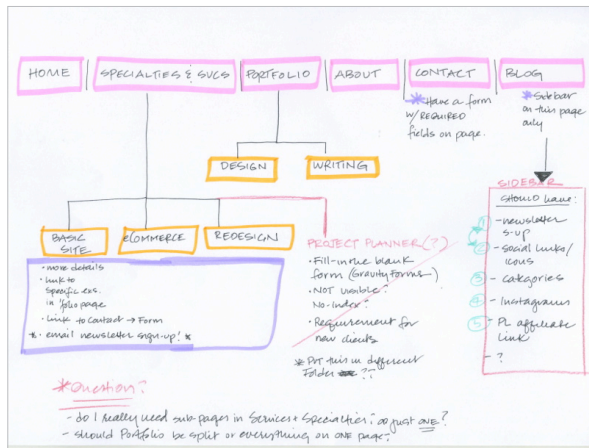 HOME
SPECIALTIES & SVCS
PORTFOLIO
ABOUT
CONTACT
BLOG
* Have a form
w/ REQUIRED
fields on page.
* Sidebar
on this page
only
DESIGN
WRITING
BASIC
SITE
eCOMMERCE
REDESIGN
• more details
• link to
specific exs.
in 'folio page
• Link to Contact → Form
* • email newsletter sign-up! *
PROJECT PLANNER (?)
• Fill-in the blank
form (Gravity Forms)
• NOT VISIBLE?
No-Index?
• Requirement for
new clients
* Put this in different
Folder ??
SIDEBAR
SHOULD have:
1 - newsletter
s-up
2 - social links/
icons
3 - categories
4 - Instagram
5 - PL affiliate
link
- ?
* Question:
- do I really need sub-pages in Services + Specialties? or just ONE?
- should Portfolio be split or everything on ONE page?